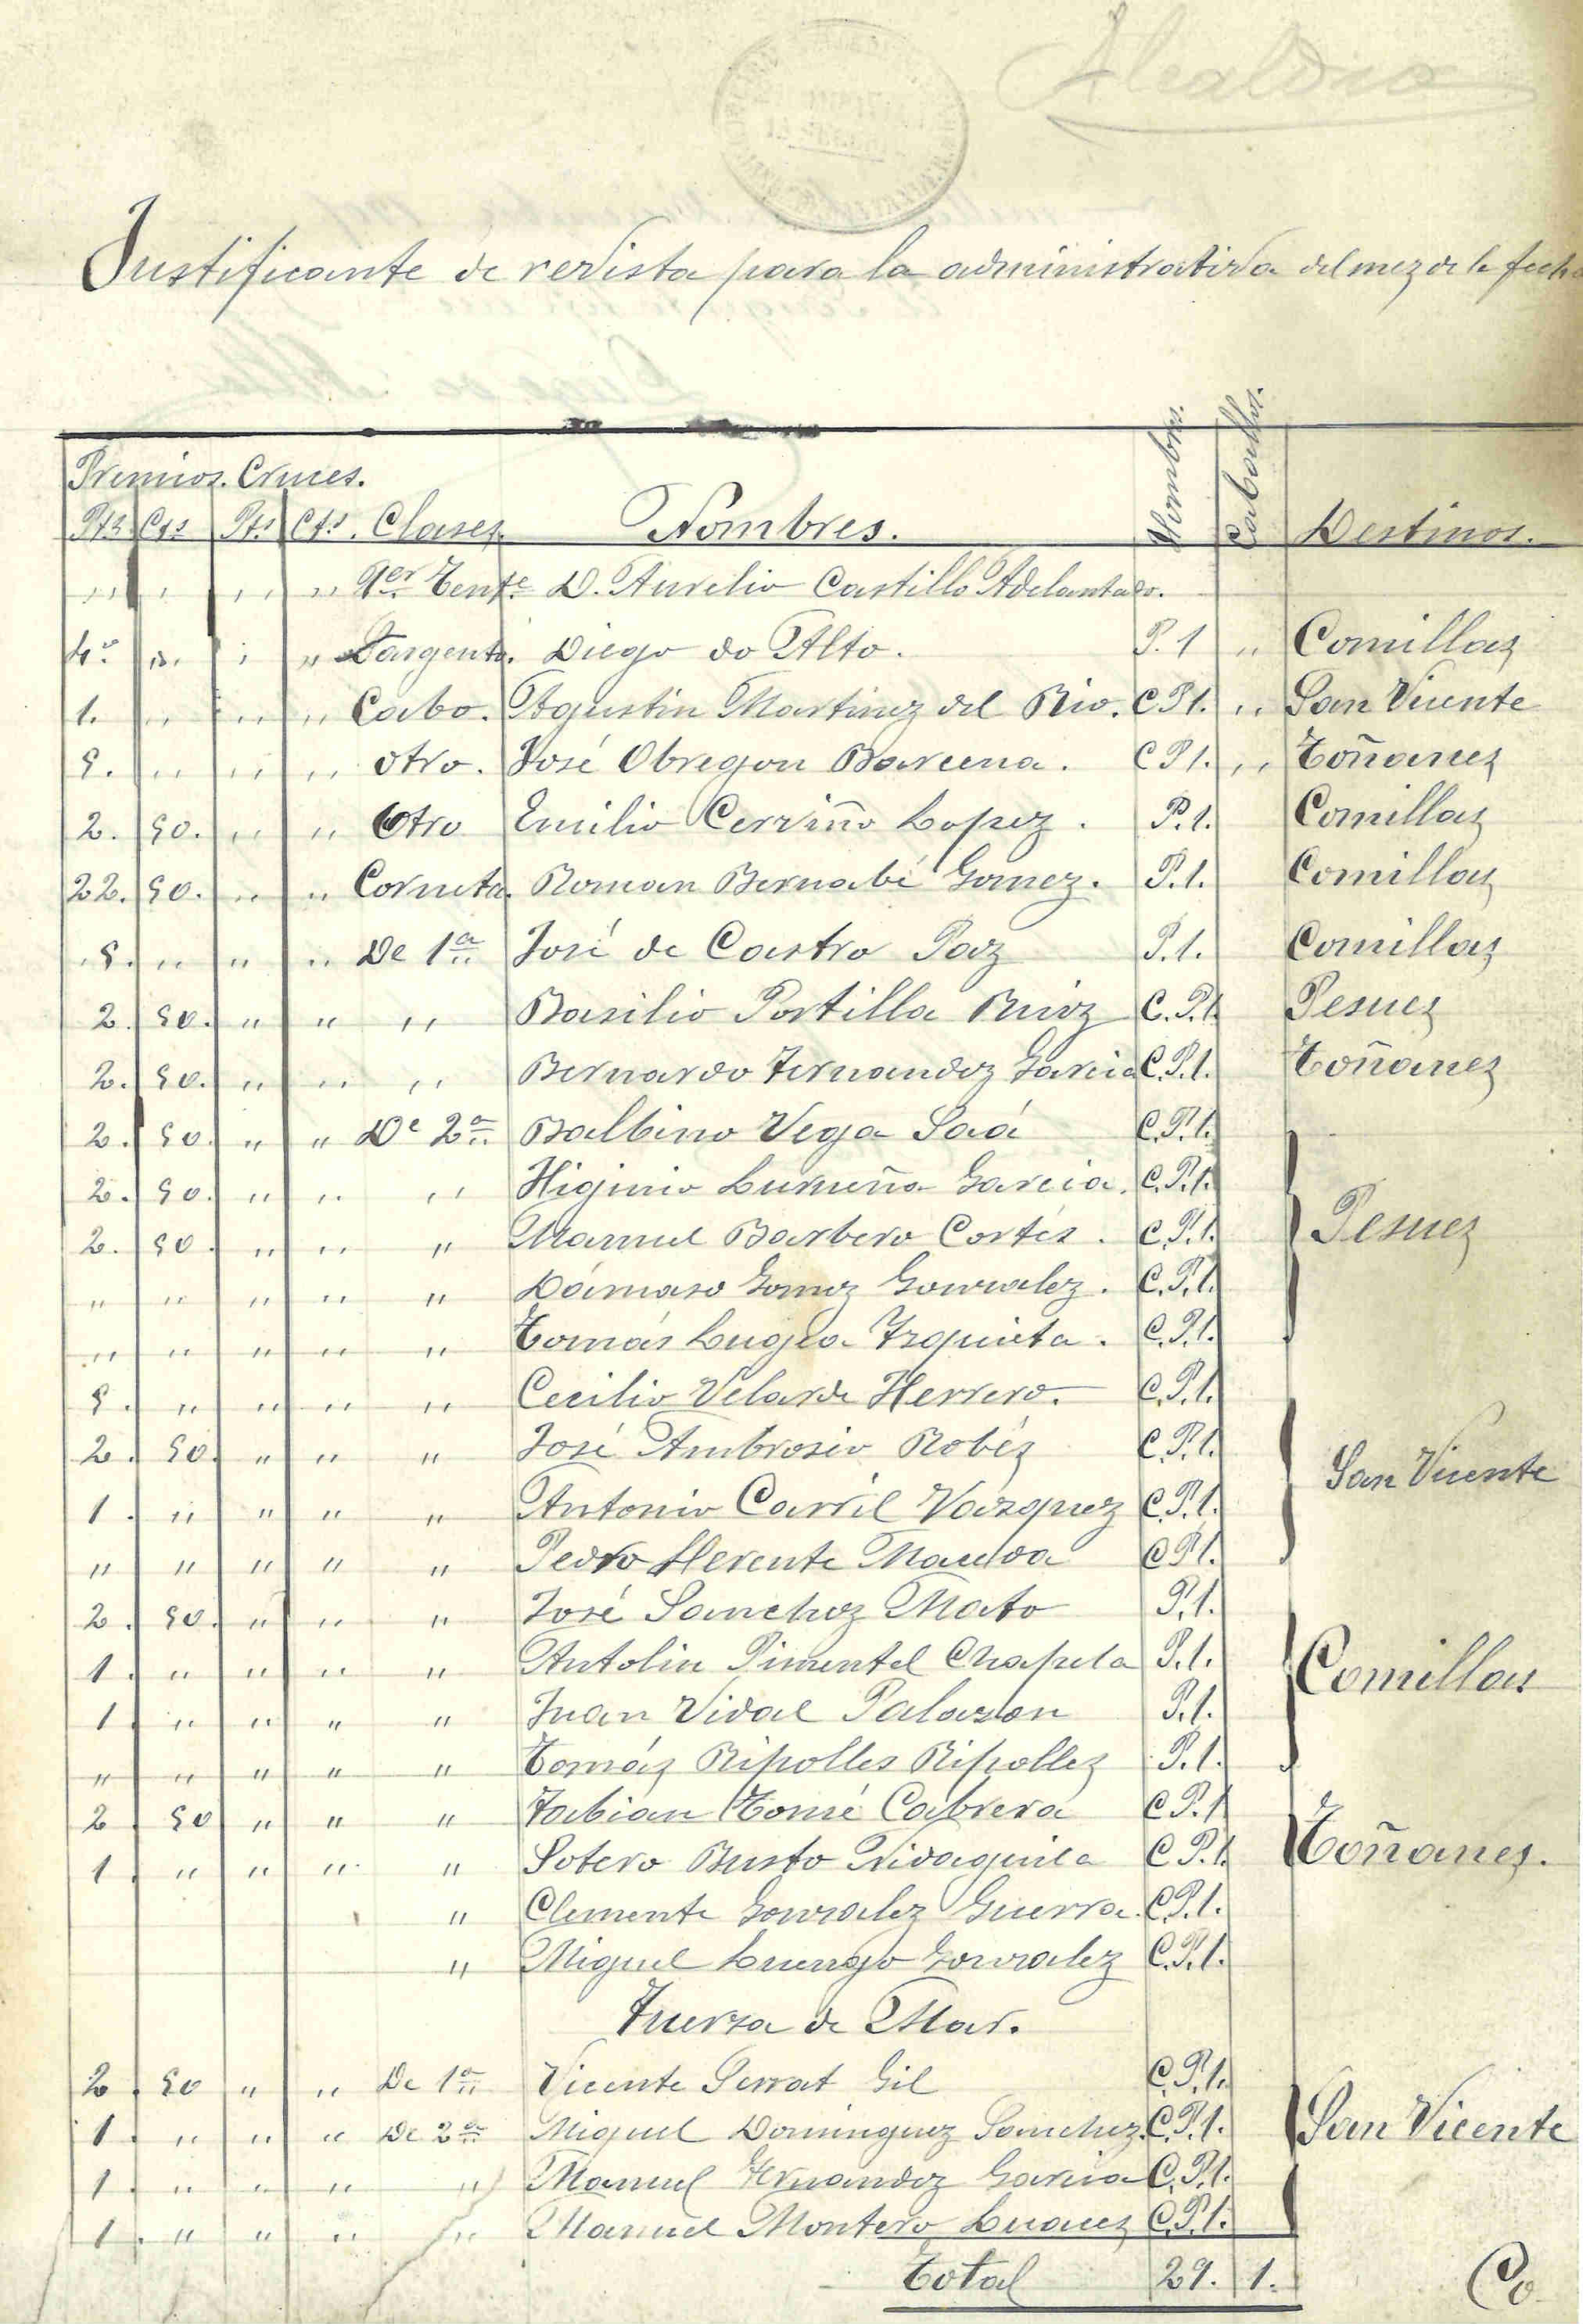 Alcaldia
Justificante de revista para la administrativa del mez de la fecha
Premios. Cruces. Hombres. Caballos.
Pts Cts Pts Cts. Clases. Nombres. Destinos.
" " " " 1er Tente D. Aurelio Castillo Adelantado.
" " Sargento. Diego do Alto. P. 1 " Comillaz
1. " " " Cabo. Agustin Martinez del Rio. C P 1. " San Vicente
5. " " " otro. José Obregon Barcena. C P 1. " Toñanez
2. 50. " " Otro Emilio Cerviño Lopez. P. 1. Comillaz
22. 50. " " Corneta. Roman Bernabé Gomez. P. 1. Comillaz
5. " " " De 1ª José de Castro Paz P. 1. Comillaz
2. 50. " " " Basilio Portilla Ruiz C. P. 1. Pesuez
2. 50. " " " Bernardo Fernandez Garcia C. P. 1. Toñanez
2. 50. " " De 2ª Balbino Vega Saá C. P. 1.
2. 50. " " " Higinio Garcia. C. P. 1.
2. 50. " " " Manuel Barbero Cortés. C. P. 1. Pesuez
" " " " " Dámaso Gomez Gonzalez. C. P. 1.
" " " " " Tomás Izquieta. C. P. 1.
5. " " " " Cecilio Velarde Herrero. C. P. 1.
2. 50. " " " José Ambrosio Robéz C. P. 1.
1. " " " " Antonio Carril Vazquez C. P. 1. San Vicente
" " " " " Pedro C P 1.
2. 50. " " " José Sanchez Mato P. 1.
1. " " " " Antolin Pimentel Chapela P. 1. Comillas
1 " " " " Juan Vidal Palazon P. 1.
" " " " " Tomáz Ripolles Ripollez P. 1.
2 50 " " " Fabian Tomé Cabrera C P. 1
1. " " " " Sotero Busto C P. 1. Toñanes.
" Clemente Gonzalez Guerra. C. P. 1.
" Miguel Luengo Gonzalez C. P. 1.
Fuerza de Mar.
2. 50 " " De 1ª Vicente Serrat Gil C. P. 1.
1. " " " De 2ª Miguel Dominguez Sanchez. C. P. 1. San Vicente
1. " " " " Manuel Fernandez Garcia C. P. 1.
1. " " " " Manuel Montero C. P. 1.
Total 29. 1. Co